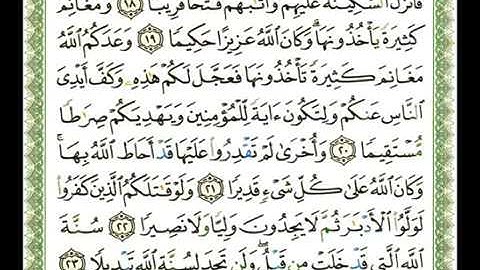 فَأَنزَلَ ٱلسَّكِينَةَ عَلَيْهِمْ وَأَثَٰبَهُمْ فَتْحًا قَرِيبًا ١٨ وَمَغَانِمَ
كَثِيرَةً يَأْخُذُونَهَا ۗ وَكَانَ ٱللَّهُ عَزِيزًا حَكِيمًا ١٩ وَعَدَكُمُ ٱللَّهُ
مَغَانِمَ كَثِيرَةً تَأْخُذُونَهَا فَعَجَّلَ لَكُمْ هَٰذِهِۦ وَكَفَّ أَيْدِىَ
ٱلنَّاسِ عَنكُمْ وَلِتَكُونَ ءَايَةً لِّلْمُؤْمِنِينَ وَيَهْدِيَكُمْ صِرَٰطًا
مُّسْتَقِيمًا ٢٠ وَأُخْرَىٰ لَمْ تَقْدِرُوا۟ عَلَيْهَا قَدْ أَحَاطَ ٱللَّهُ بِهَا ۚ
وَكَانَ ٱللَّهُ عَلَىٰ كُلِّ شَىْءٍ قَدِيرًا ٢١ وَلَوْ قَٰتَلَكُمُ ٱلَّذِينَ كَفَرُوا۟
لَوَلَّوُا۟ ٱلْأَدْبَٰرَ ثُمَّ لَا يَجِدُونَ وَلِيًّا وَلَا نَصِيرًا ٢٢ سُنَّةَ
ٱللَّهِ ٱلَّتِى قَدْ خَلَتْ مِن قَبْلُ ۖ وَلَن تَجِدَ لِسُنَّةِ ٱللَّهِ تَبْدِيلًا ٢٣